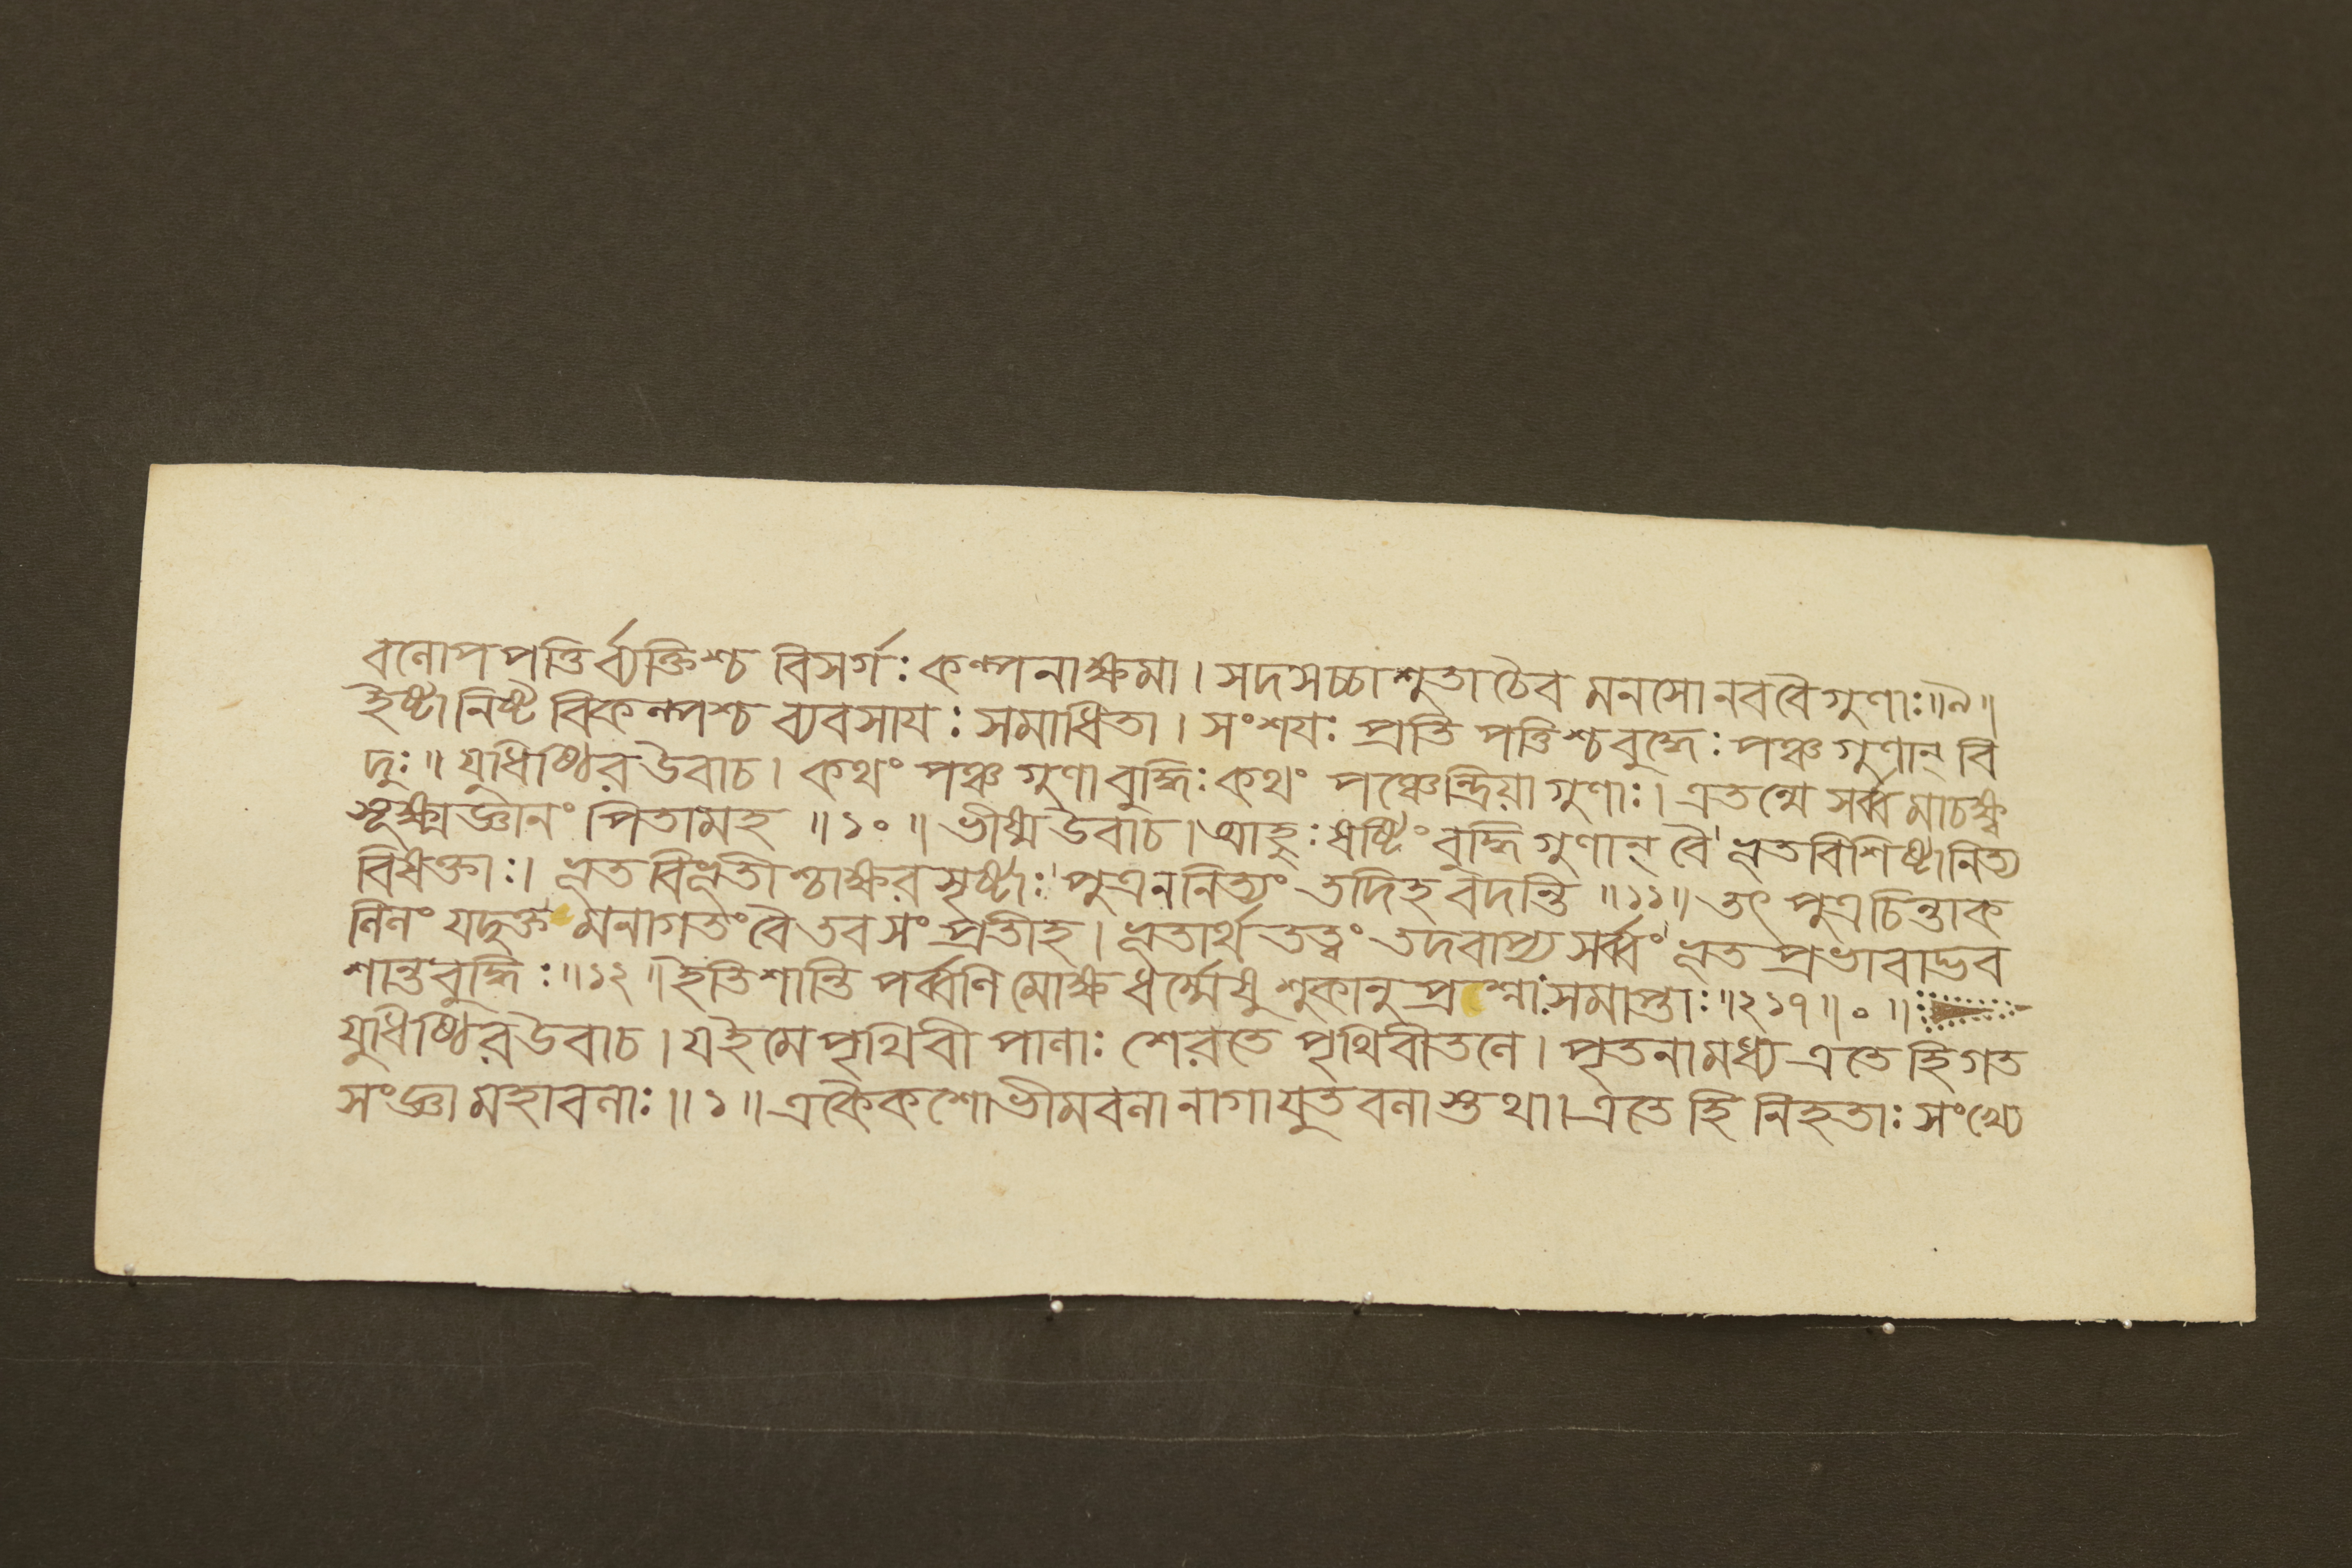 বলোপপত্তির্ব্যক্তিশ্চ বিসর্গঃ কল্পনাক্ষমা । সদসচ্চাশুতা চৈব মনসো নববৈগুণাঃ ॥৯॥
ইষ্টানিষ্ট বিকল্পশ্চ ব্যবসাযঃ সমাধিতা । সংশযঃ প্রতি পত্তিশ্চবুদ্ধেঃ পঞ্চগুণান্ বি
দুঃ ॥ যুধিষ্ঠির উবাচ । কথং পঞ্চ গুণাবুদ্ধিঃ কথং পঞ্চেন্দ্রিয়া গুণাঃ । এতন্মে সর্ব্বমাচক্ষ্ব
সূক্ষ্মজ্ঞানং পিতামহ ॥ ১০ ॥ ভীষ্ম উবাচ । আহুঃ ষষ্টিং বুদ্ধিগুণান্ বৈ ভূতবিশিষ্টানিত্য
বিষক্তাঃ । ভূতবিভূতীশ্চাক্ষরসৃষ্টাঃ পুত্রননিত্যং তদিহ বদন্তি ॥ ১১॥ তৎ পুত্রচিন্তাক
লিলং যদুক্ত মনাগতংবৈ তবসং প্রতীহ । ভূতার্থ তত্ত্বং তদবাপ্য সর্ব্বং ভূত প্রভাবাদ্ভব
শান্তবুদ্ধিঃ ॥১২ ॥ ইতিশান্তি পর্ব্বণি মোক্ষ ধর্ম্মেষু শুকানুপ্রশ্নোঃসমাপ্তাঃ ॥২১৭॥ ০ ॥
যুধিষ্ঠির উবাচ । যইমে পৃথিবী পালাঃ শেরতে পৃথিবীতলে । পৃতনামধ্য এতে হিগত
সংজ্ঞা মহাবলাঃ ॥ ১ ॥ একৈকশোভীমবলা নাগাযুতবলাস্তথা । এতে হি নিহতাঃ সংখ্যে